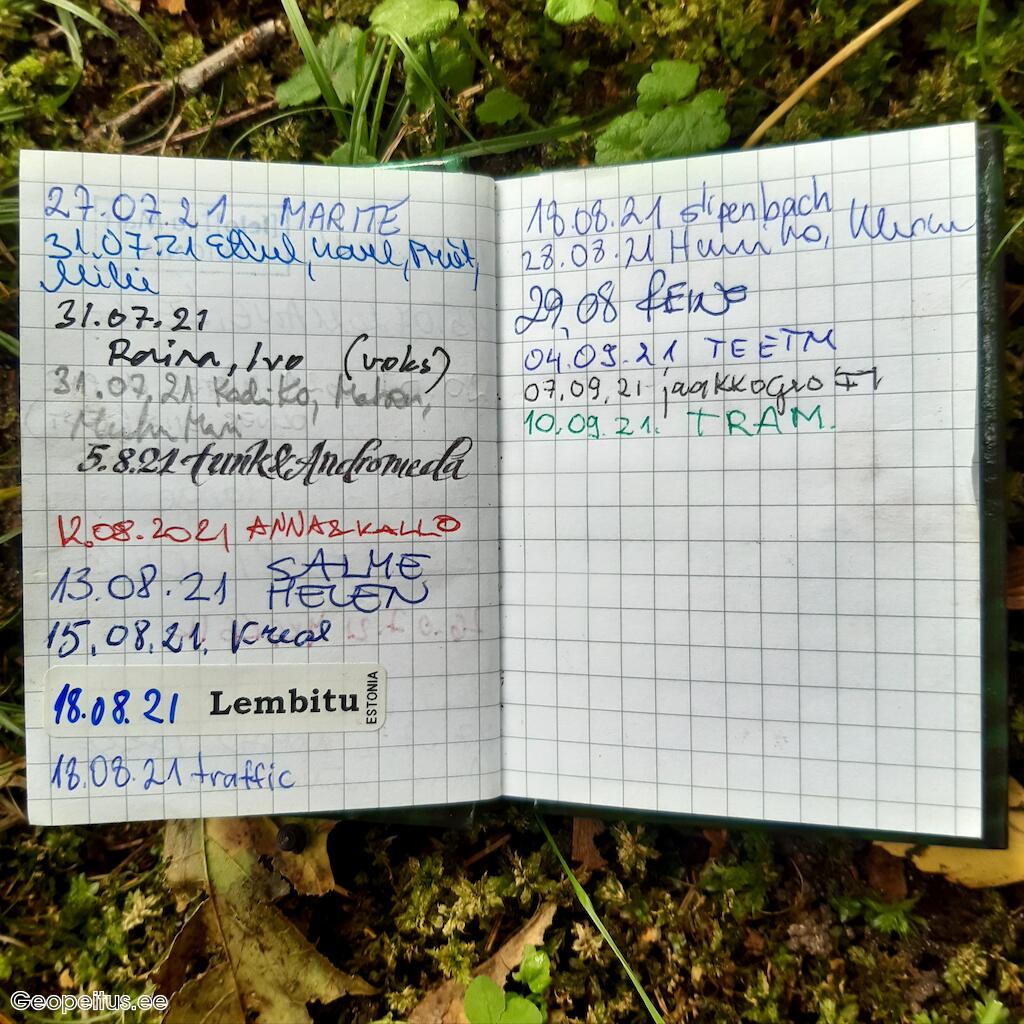 27.07.21 MARITE
31.07.21 Ethel, Kaul, Priit,
Milii
31.07.21
Raina, Ivo (voks)
31.07.21 KadiKo,
Mari
5.8.21 tunk&Andromeda
12.08.2021 ANNA&KALLO
13.08.21 SALME
HELEN
15.08.21. Kreol
18.08.21 Lembitu ESTONIA
18.08.21 traffic
18.08.21 slipenbach
28.08.21
29.08 REIN
04.09.21 TEETM
07.09.21 jaakkogeo
10.09.21. TRAM.
Geopeitus.ee